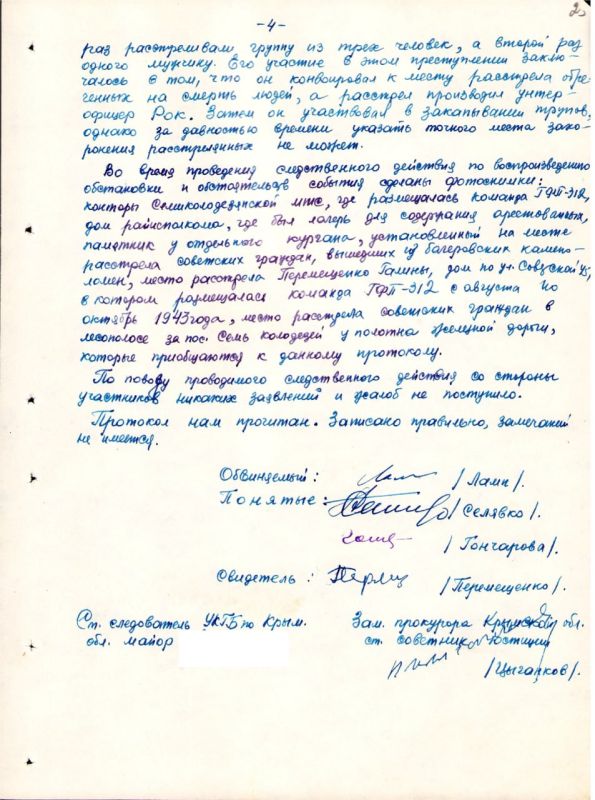 -4-
раз расстреливали группу из трех человек, а второй раз
одного мужчину. Его участие в этом преступлении заклю-
чалось в том, что он конвоировал к месту расстрела обре-
ченных на смерть людей, а расстрел производил унтер-
офицер Рок. Затем он участвовал в закапывании трупов,
однако за давностью времени указать точного места захо-
ронения расстрелянных не может.
Во время проведения следственного действия по воспроизведению
обстановки и обстоятельств события сделаны фотоснимки:
конторы Семиколодезянской мтс, где размещалась команда ГФП-312,
дом райисполкома, где был лагерь для содержания арестованных,
памятник у отдельного кургана, установленный на месте
расстрела советских граждан, вышедших из багеровских камено-
ломен, место расстрела Перемещенко Галины, дом по ул.
в котором размещалась команда ГФП-312 с августа по
октябрь 1943 года, место расстрела советских граждан в
лесополосе за пос. Семь колодезей у полотна железной дороги,
которые приобщаются к данному протоколу.
По поводу проводимого следственного действия со стороны
участников никаких заявлений и жалоб не поступило.
Протокол нам прочитан. Записано правильно, замечаний
не имеется.
Обвиняемый: /Ламп/.
Понятые: /Селявко/.
/Гончарова/.
Свидетель: /Перемещенко/.
Ст. следователь УКГБ по Крым.
обл. майор
Зам. прокурора Крымской обл.
ст. советник юстиции
/Цыганков/.